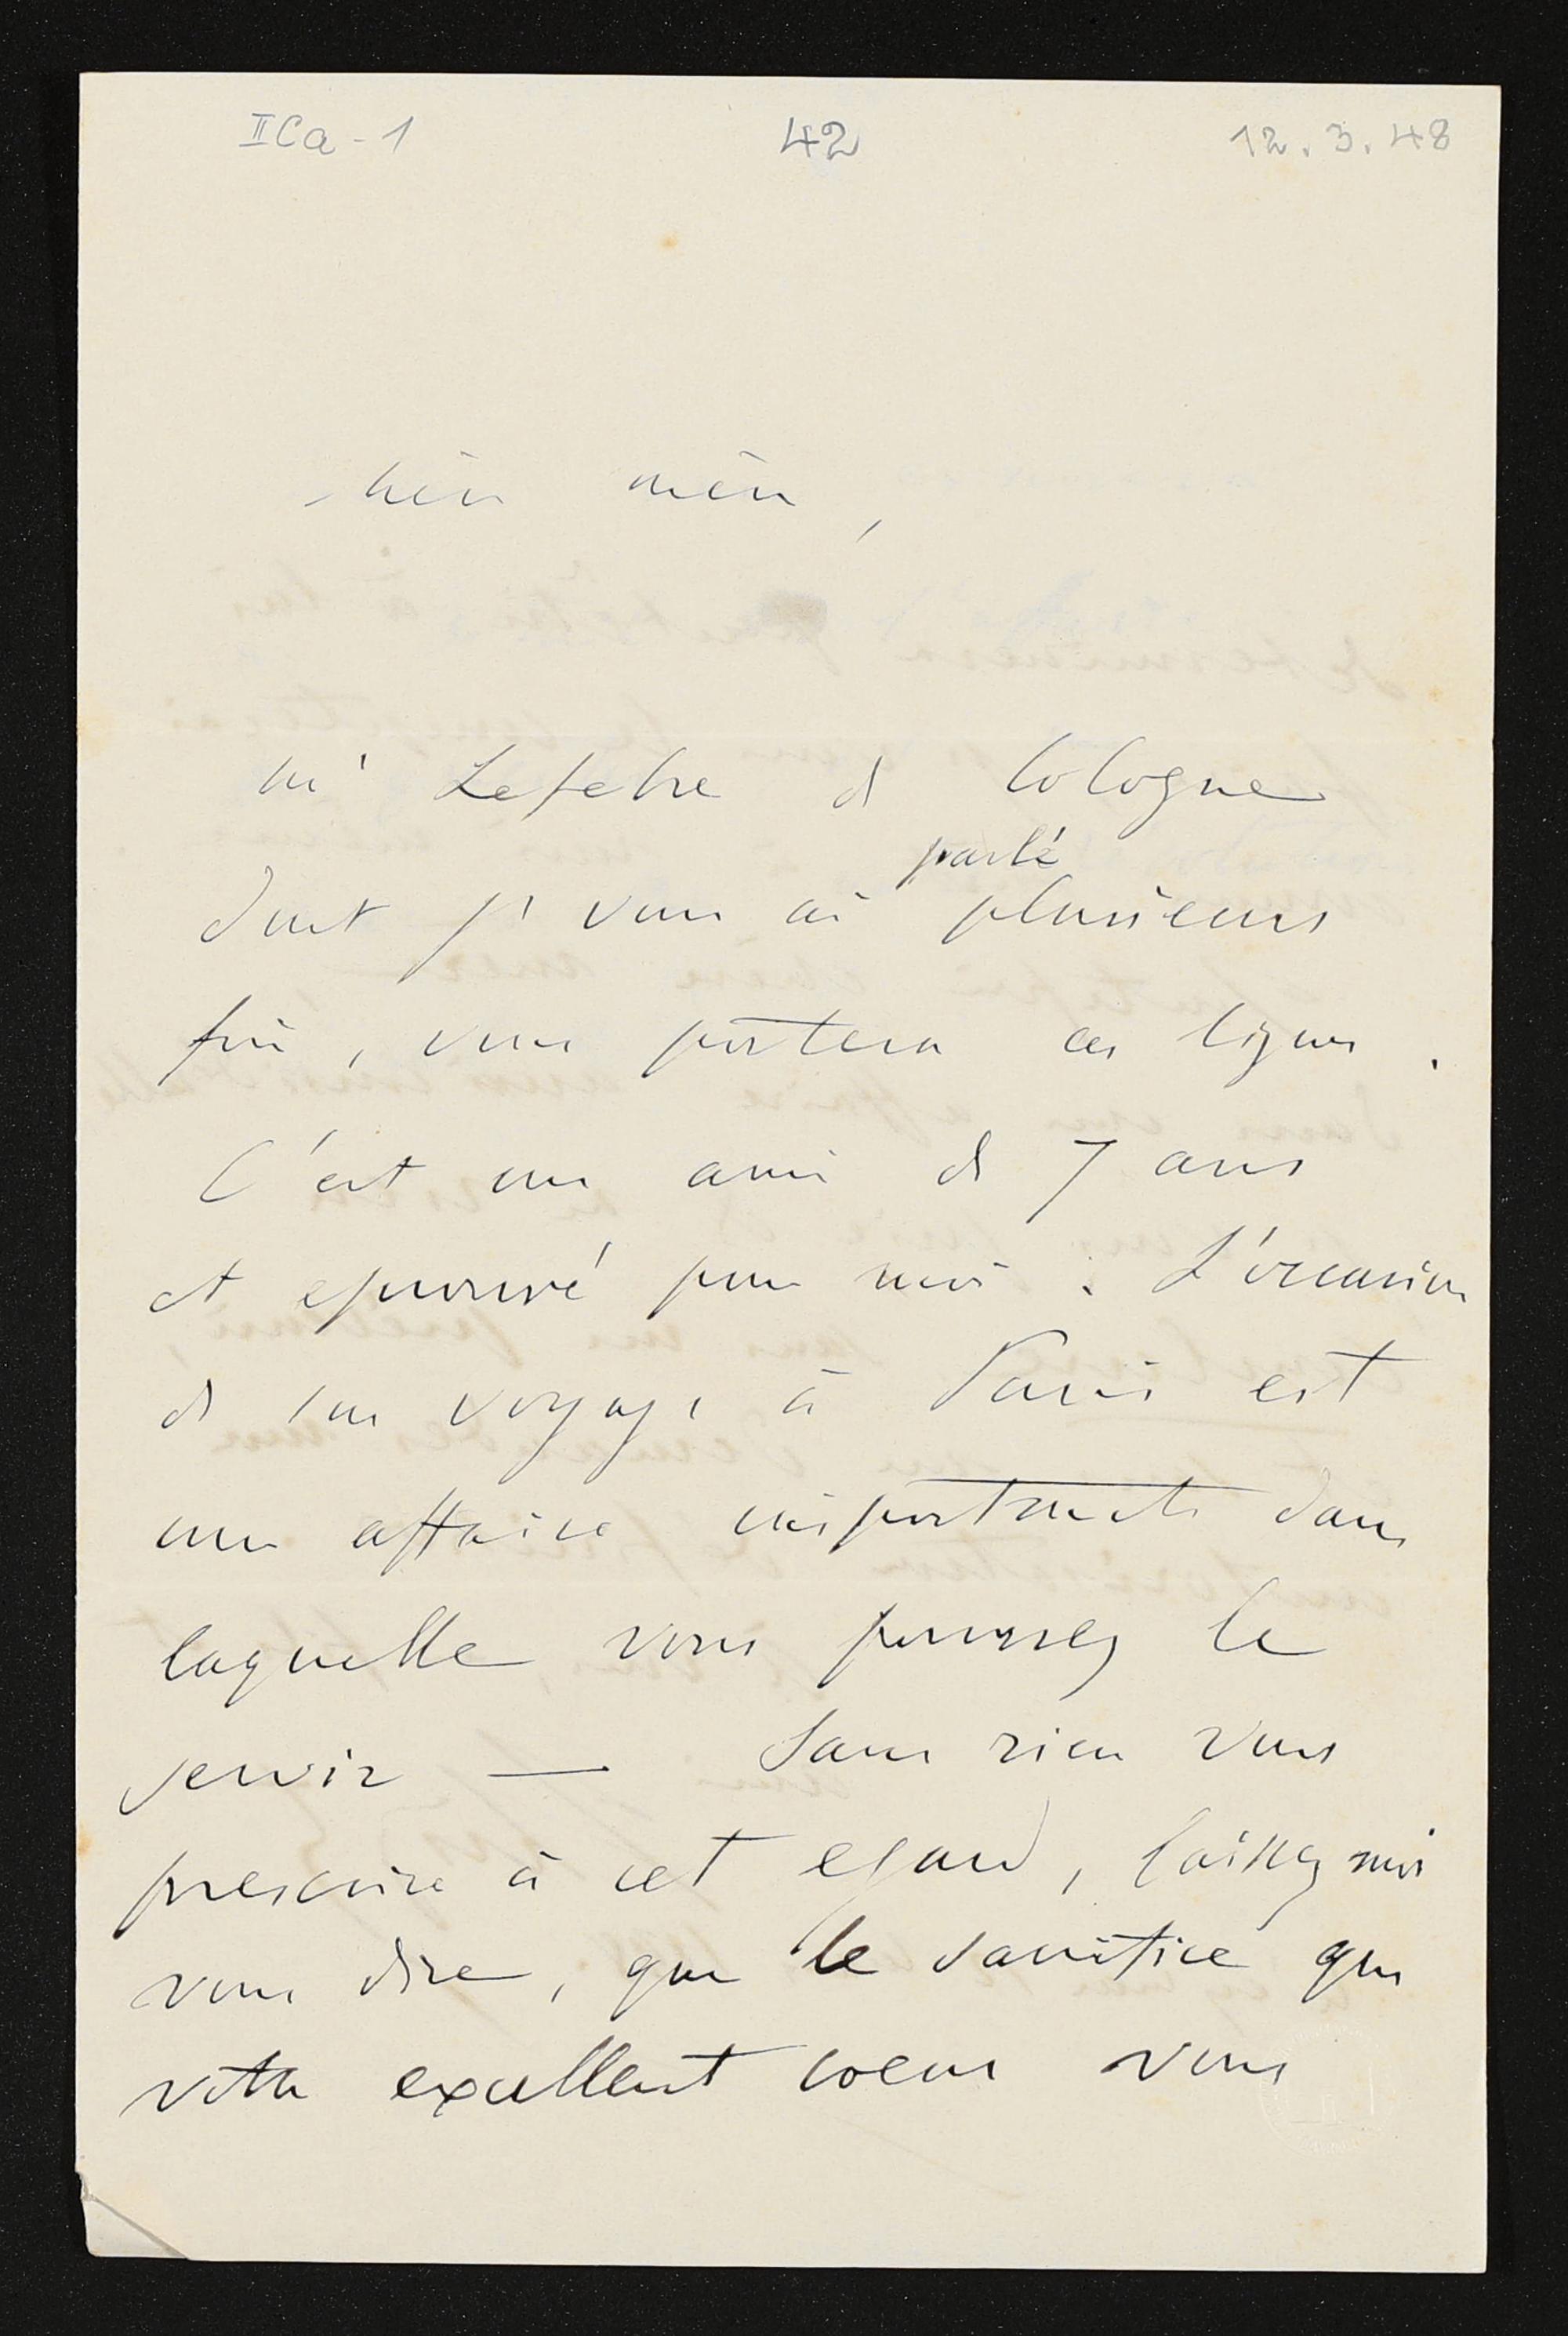 IICa - 1 42 12.3.48
chère mère,
Mr Lefebre de Cologne
dont je vous ai parlé plusieurs
fois, vous portera ces lignes.
C'est un ami de 7 ans
et eprouvé pour moi. L'occasion
de son voyage à Paris est
une affaire importante dans
laquelle vous pouvez le
servir — Sans rien vous
prescrire à cet egard, laissez moi
vous dire, que le sacrifice que
votre excellent coeur vous